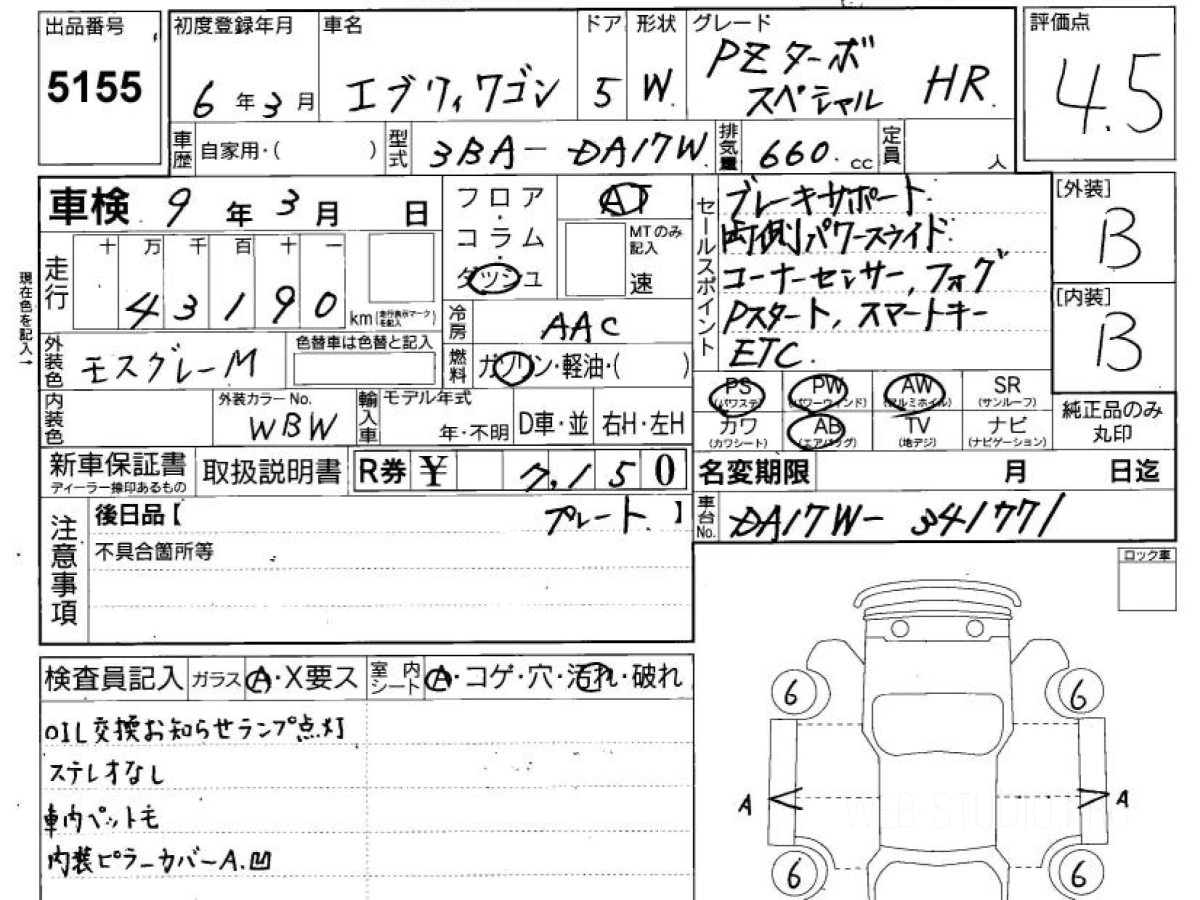 出品番号
5155
初度登録年月
6年3月
車名
エブリィワゴン
ドア
5
形状
W.
グレード
PZターボ
スペシャル HR.
評価点
4.5
車歴 自家用・( )
型式 3BA-DA17W.
排気量 660. cc
定員 人
車検 9年3月 日
フロア・コラム・ダッシュ
AT
MTのみ記入
速
セールスポイント
ブレーキサポート.
両側パワースライド.
コーナーセンサー, フォグ
Pスタート, スマートキー
ETC.
[外装]
B
[内装]
B
純正品のみ
丸印
現在色を記入→
走行
十 万 千 百 十 一
4 3 1 9 0 km (走行表示マークを記入)
冷房 AAC
外装色 モスグレーM
色替車は色替と記入
燃料 ガソリン・軽油・( )
内装色
外装カラーNo.
WBW
輸入車
モデル年式
年・不明
D車・並
右H・左H
PS (パワステ)
PW (パワーウィンド)
AW (アルミホイル)
SR (サンルーフ)
カワ (カワシート)
AB (エアバッグ)
TV (地デジ)
ナビ (ナビゲーション)
新車保証書
ディーラー捺印あるもの
取扱説明書
R券 ¥ 7,150
名変期限 月 日迄
車台No. DA17W-341771
注意事項
後日品【 プレート. 】
不具合箇所等
ロック車
検査員記入
ガラス A・X要ス
室内シート A・コゲ・穴・汚れ・破れ
OIL交換お知らせランプ点灯
ステレオなし
車内ペット毛
内装ピラーカバーA.凹
6 6
A A
WEB-STUDIO.PRO
6 6